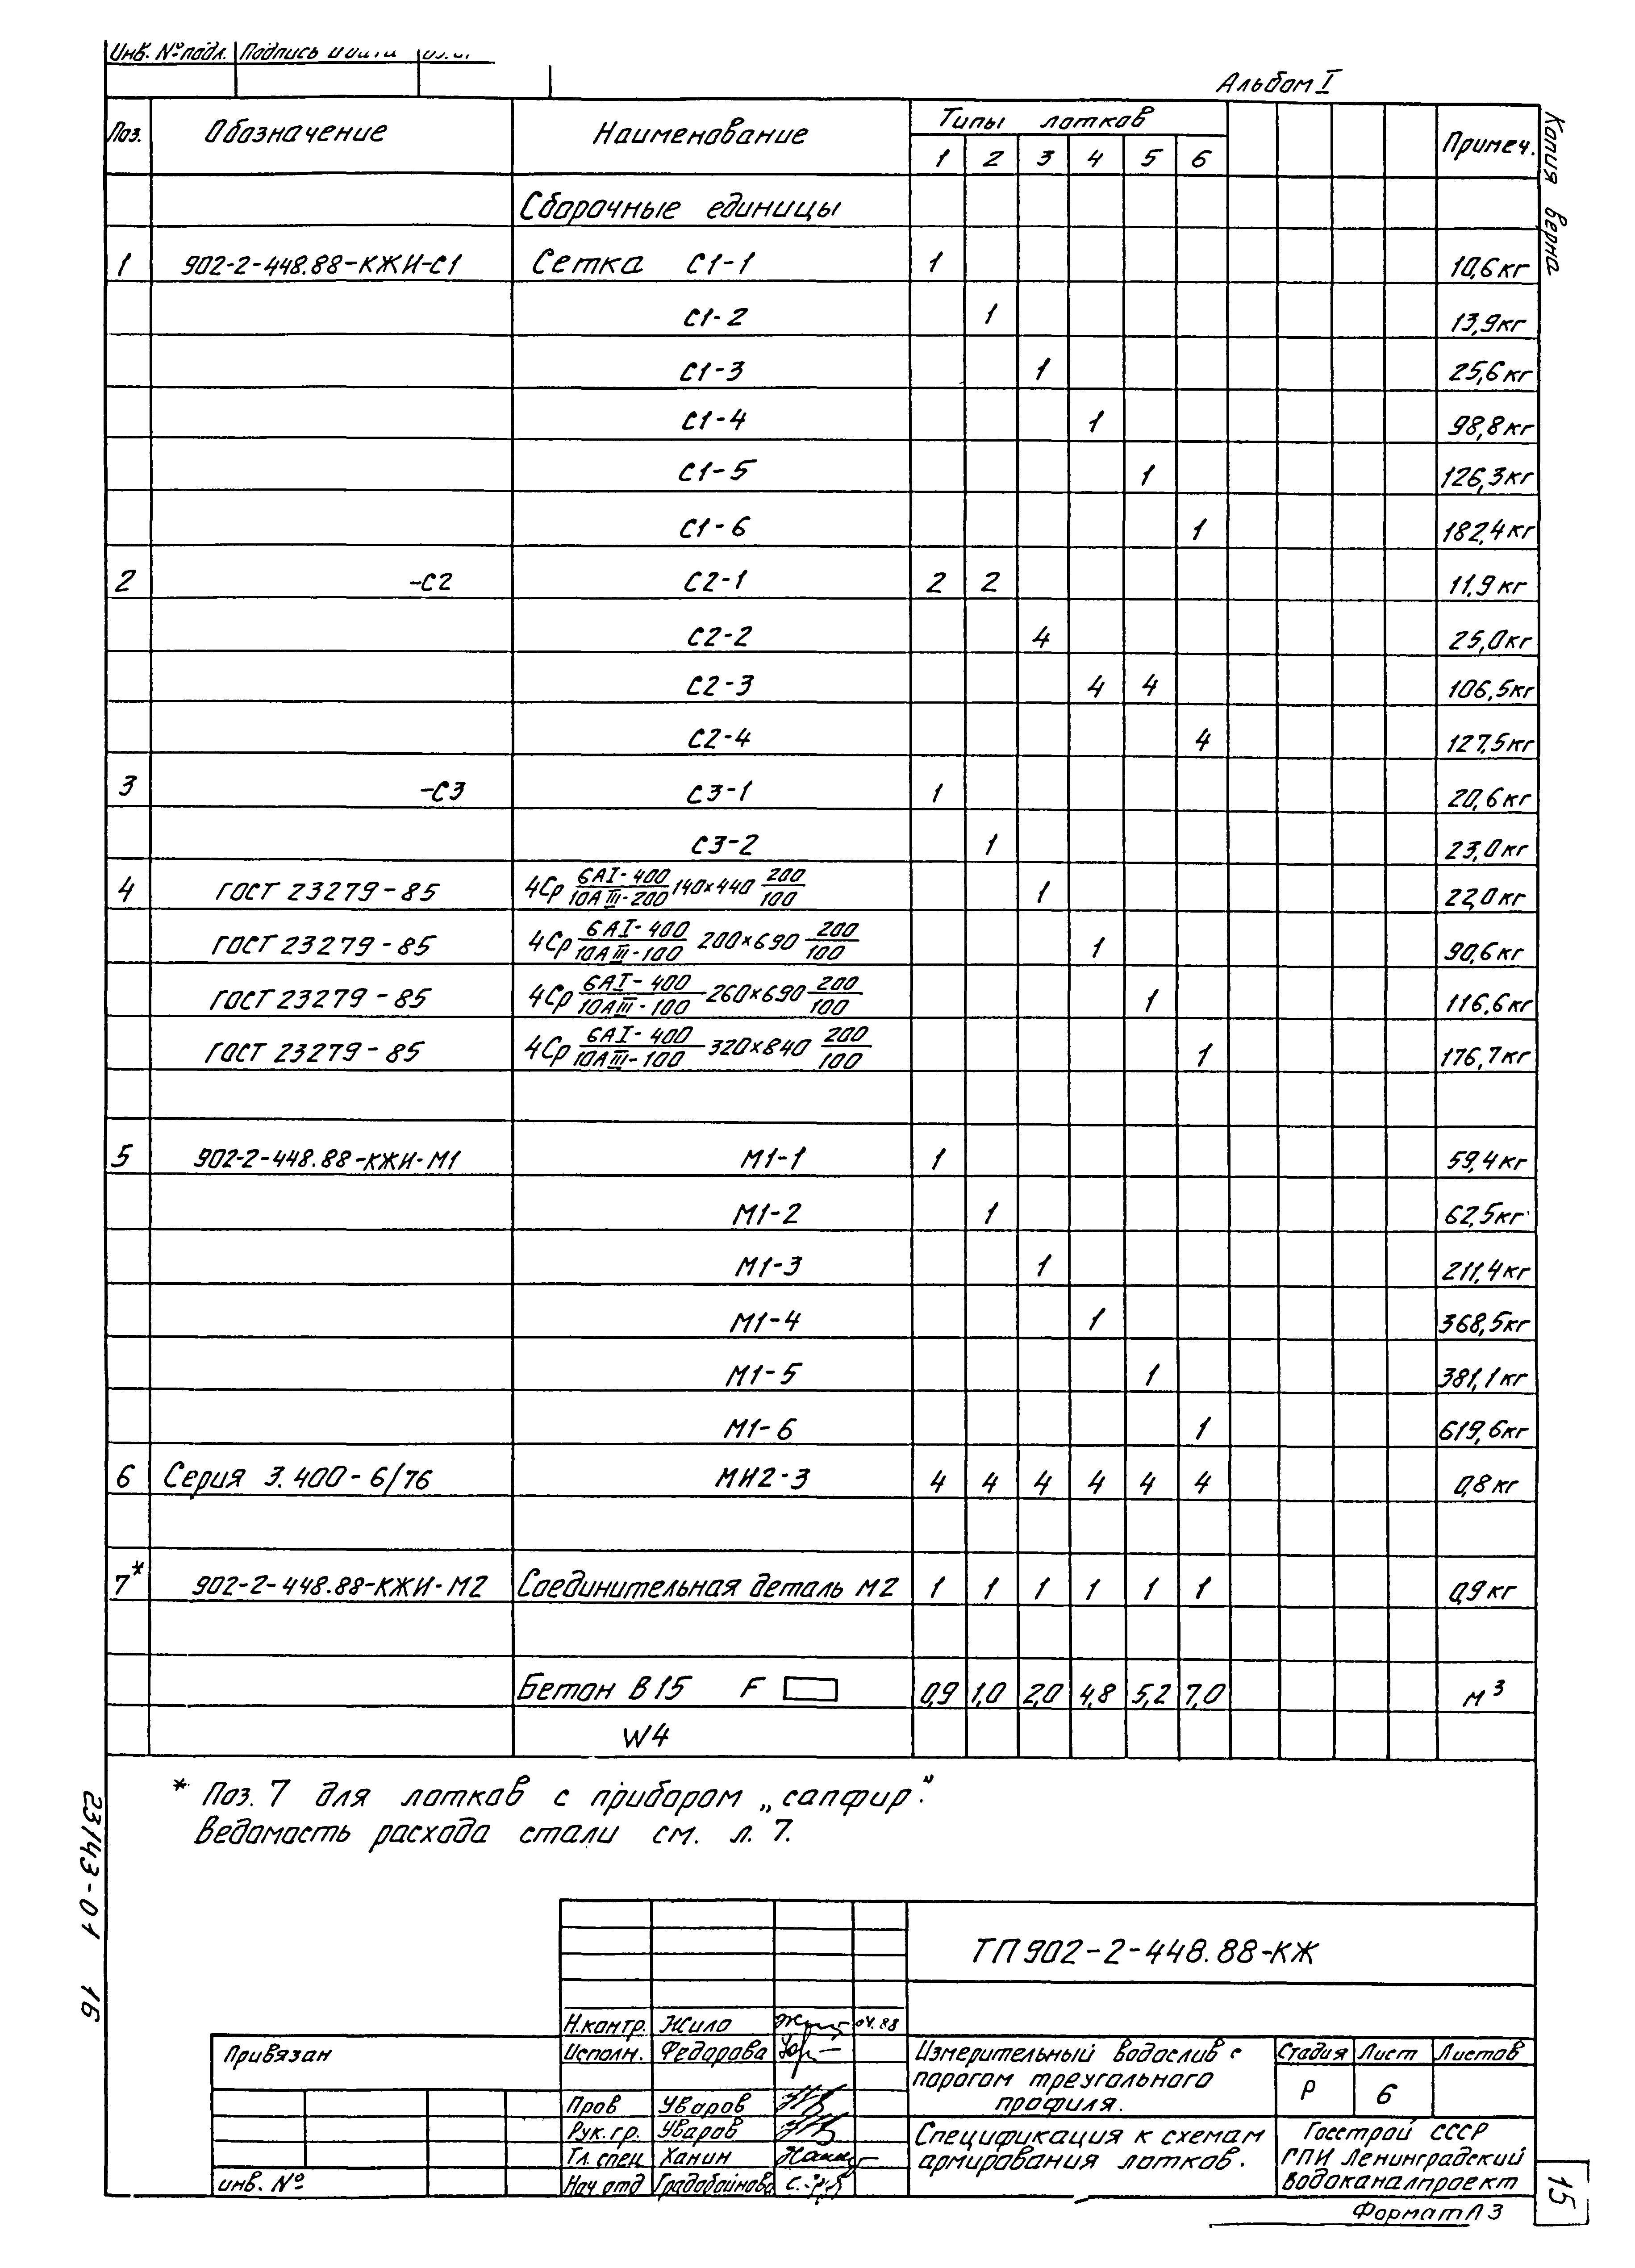 Инв. № подл. Подпись и дата
Альбом I
Копия верна
Поз. Обозначение Наименование Типы лотков Примеч.
1 2 3 4 5 6
Сборочные единицы
1 902-2-448.88-КЖИ-С1 Сетка С1-1 1 10,6кг
С1-2 1 13,9кг
С1-3 1 25,6кг
С1-4 1 98,8кг
С1-5 1 126,3кг
С1-6 1 182,4кг
2 -С2 С2-1 2 2 11.9кг
С2-2 4 25,0кг
С2-3 4 4 106,5кг
С2-4 4 127,5кг
3 -С3 С3-1 1 20,6кг
С3-2 1 23,0кг
4 ГОСТ 23279-85 4Ср 6АI-400/10АIII-200 140×440 200/100 1 22,0кг
ГОСТ 23279-85 4Ср 6АI-400/10АIII-100 200×690 200/100 1 90,6кг
ГОСТ 23279-85 4Ср 6АI-400/10АIII-100 260×690 200/100 1 116,6кг
ГОСТ 23279-85 4Ср 6АI-400/10АIII-100 320×840 200/100 1 176,7кг
5 902-2-448.88-КЖИ-М1 М1-1 1 59,4кг
М1-2 1 62,5кг
М1-3 1 211,4кг
М1-4 1 368,5кг
М1-5 1 381,1кг
М1-6 1 619,6кг
6 Серия 3.400-6/76 МН2-3 4 4 4 4 4 4 0,8кг
7* 902-2-448.88-КЖИ-М2 Соединительная деталь М2 1 1 1 1 1 1 0,9кг
Бетон В15 F 0,9 1,0 2,0 4,8 5,2 7,0 м³
W4
* Поз. 7 для лотков с прибором „сапфир."
Ведомость расхода стали см. л. 7.
23143-01 16
ТП902-2-448.88-КЖ
Н.контр. Жило 04.88
Исполн. Федорова
Пров Уваров
Рук. гр. Уваров
Гл. спец Ханин
Нач отд Градобойнова
Привязан
инв. №
Измерительный водослив с
порогом треугольного
профиля.
Стадия Лист Листов
Р 6
Спецификация к схемам
армирования лотков.
Госстрой СССР
ГПИ Ленинградский
Водоканалпроект
15
Формат А3